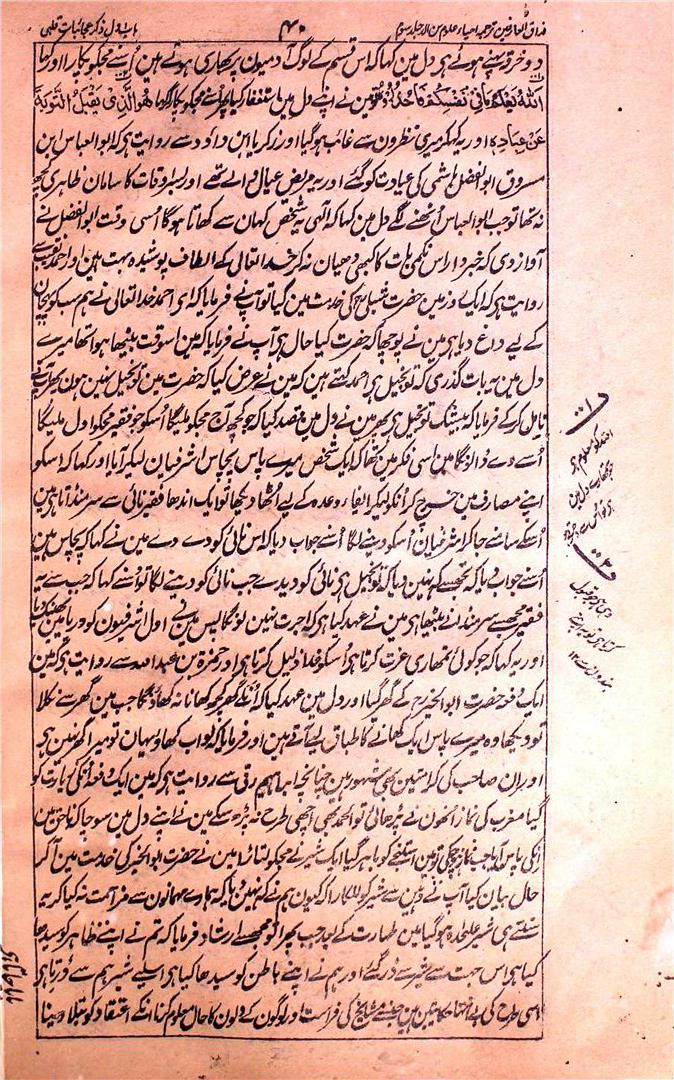 مذاق العارفین ترجمہ احیاء علوم الدین جلد سوم ۴۰ باب اول ذکر عجائبات قلبی
دو خرقے پہنے ہوئے ہی دل مین کہا کہ اس قسم کے لوگ آدمیون پر بھاری ہوتے ہین اُسنے مجکو پکارا اور کہا
اللهُ يَعْلَمُ مَا فِي نَفْسِكُمْ فَاحْذَرُوهُ تو مین نے اپنے دل مین استغفار کیا پھر اُسنے مجکو پکار کر کہا هُوَ الَّذِي يَقْبَلُ التَّوْبَةَ
عَنْ عِبَادِهِ اور یہ کہکر میری نظرون سے غائب ہوگیا اور زکریا ابن داؤد سے روایت ہی کہ ابو العباس ابن
مسروق ابو الفضل ہاشمی کی عیادت کو گئے اور یہ مریض عیال والے تھے اور بسر اوقات کا سامان ظاہری کچھ
نہ تھا تو جب ابو العباس اُٹھنے لگے دل مین کہا کہ الٰہی یہ شخص کہان سے کھاتا ہوگا اُسی وقت ابو الفضل نے
آواز دی کہ خبردار اس نکمی بات کا کبھی دھیان نہ کر خدا تعالی کے الطاف پوشیدہ بہت ہین اور احمد نقیب سے
روایت ہی کہ ایک روز مین حضرت شبلی رح کی خدمت مین گیا تو آپنے فرمایا کہ ای احمد خدا تعالی نے ہم سب کو
کے لیے داغ دیا ہی مین نے پوچھا کہ حضرت کیا حال ہی آپ نے فرمایا کہ مین اسوقت بیٹھا ہوا تھا میرے
دل مین یہ بات گذری کہ تو بخیل ہی احمد کہتے ہین کہ مین نے عرض کیا کہ حضرت مین تو بخیل نہین ہون پھر آپنے
تامل کرکے فرمایا کہ بیشک تو بخیل ہی پھر مین نے دل مین قصد کیا کہ جو کچھ آج مجکو ملیگا اُسکو جو فقیر مجکو اول ملیگا
اُسے دے ڈالونگا مین اسی فکر مین تھا کہ ایک شخص میرے پاس پچاس اشرفیان لیکر آیا اور کہا کہ اسکو
اپنے مصارف مین خرچ کر اُنکو لیکر ایفاء وعدہ کے لیے اُٹھا دیکھا تو ایک اندھا فقیر نائی سے سر منڈاتا ہی مین
اُسکے سامنے جا کر اشرفیان اُسکو دینے لگا اُسنے جواب دیا کہ اس نائی کو دے دے مین نے کہا کہ پچاس ہین
اُسنے جواب دیا کہ تجھسے کہہ نہین دیا کہ تو بخیل ہی نائی کو دیدے جب نائی کو دینے لگا تو اُسنے کہا کہ جب سے یہ
فقیر مجھسے سر منڈانے بیٹھا ہی مین نے عہد کیا ہی کہ اجرت نہین لونگا پس مین نے اول اشرفیون کو دریا مین پھینک دیا
اور یہ کہا کہ جو کوئی تمھاری عزت کرتا ہی اُسکو خدا ذلیل کرتا ہی اور حمزہ بن عبد اللہ سے روایت ہی کہ مین
ایک دفعہ حضرت ابو الخیر رح کے گھر گیا اور دل مین عہد کیا کہ اُنکے گھر کچھ کھانا نہ کھاؤنگا جب مین گھر سے نکلا
تو دیکھا وہ میرے پاس ایک کھانے کا طباق لیے آتے ہین اور فرمایا کہ لو اب کھاؤ یہان تو میرا گھر نہین ہی
اور ان صاحب کی کرامتین بھی مشہور ہین چنانچہ ابراہیم رقی سے روایت ہی کہ مین ایک دفعہ اُنکی زیارت کو
گیا مغرب کی نماز اُنھون نے پڑھائی تو الحمد بھی اچھی طرح نہ پڑھ سکے مین نے اپنے دل مین سوچا کہ ناحق مین
انکے پاس آیا جب نماز ہو چکی تو مین استنجے کو باہر گیا ایک شیر نے مجکو لتاڑا مین نے حضرت ابو الخیر کی خدمت مین آ کر
حال بیان کیا آپ نے وہین سے شیر کو للکارا کہ کیون ہم نے کہہ نہین دیا کہ ہمارے مہمانون سے مزاحمت نہ کیا کر یہ
سنتے ہی شیر علیٰحدہ ہوگیا مین طہارت کے بعد جب پھرا تو مجھسے ارشاد فرمایا کہ تم نے اپنے ظاہر کو سیدھا
کیا ہی اس جہت سے شیر سے ڈر گئے اور ہم نے اپنے باطن کو سیدھا کیا ہی اسلیے شیر ہم سے ڈرتا ہی
اسی طرح کی بے انتہا حکایتین ہین جنسے مشایخ کی فراست اور لوگون کے دلون کا حال معلوم کرنا انکے اعتقاد کو بتلا دینا
اللہ کو معلوم ہی
جو تمھارے دل مین
ہی تو اُس سے ڈرو
وہی ہی جو قبول
کرتا ہی توبہ اپنے
بندون سے ۱۲